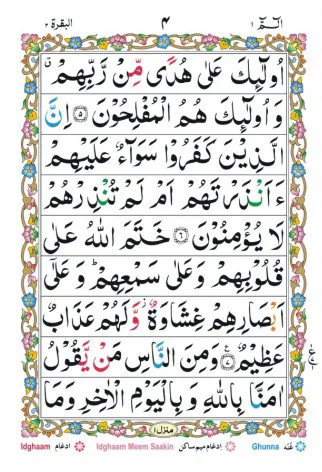 الٓمّٓ ١ ٤ البقرة ٢
اُولٰٓئِكَ عَلٰی هُدًی مِّنْ رَّبِّهِمْ ۗ
وَ اُولٰٓئِكَ هُمُ الْمُفْلِحُوْنَ ۝٥ اِنَّ
الَّذِیْنَ كَفَرُوْا سَوَآءٌ عَلَیْهِمْ
ءَاَنْذَرْتَهُمْ اَمْ لَمْ تُنْذِرْهُمْ
لَا یُؤْمِنُوْنَ ۝٦ خَتَمَ اللّٰهُ عَلٰی
قُلُوْبِهِمْ وَعَلٰی سَمْعِهِمْ ؕ وَ عَلٰۤی
اَبْصَارِهِمْ غِشَاوَةٌ ؗ وَّلَهُمْ عَذَابٌ
عَظِیْمٌ ۝٧ وَمِنَ النَّاسِ مَنْ یَّقُوْلُ
اٰمَنَّا بِاللّٰهِ وَ بِالْیَوْمِ الْاٰخِرِ وَمَا
منزل ١
Idghaam ادغام Idghaam Meem Saakin ادغام میم ساکن Ghunna غنّه